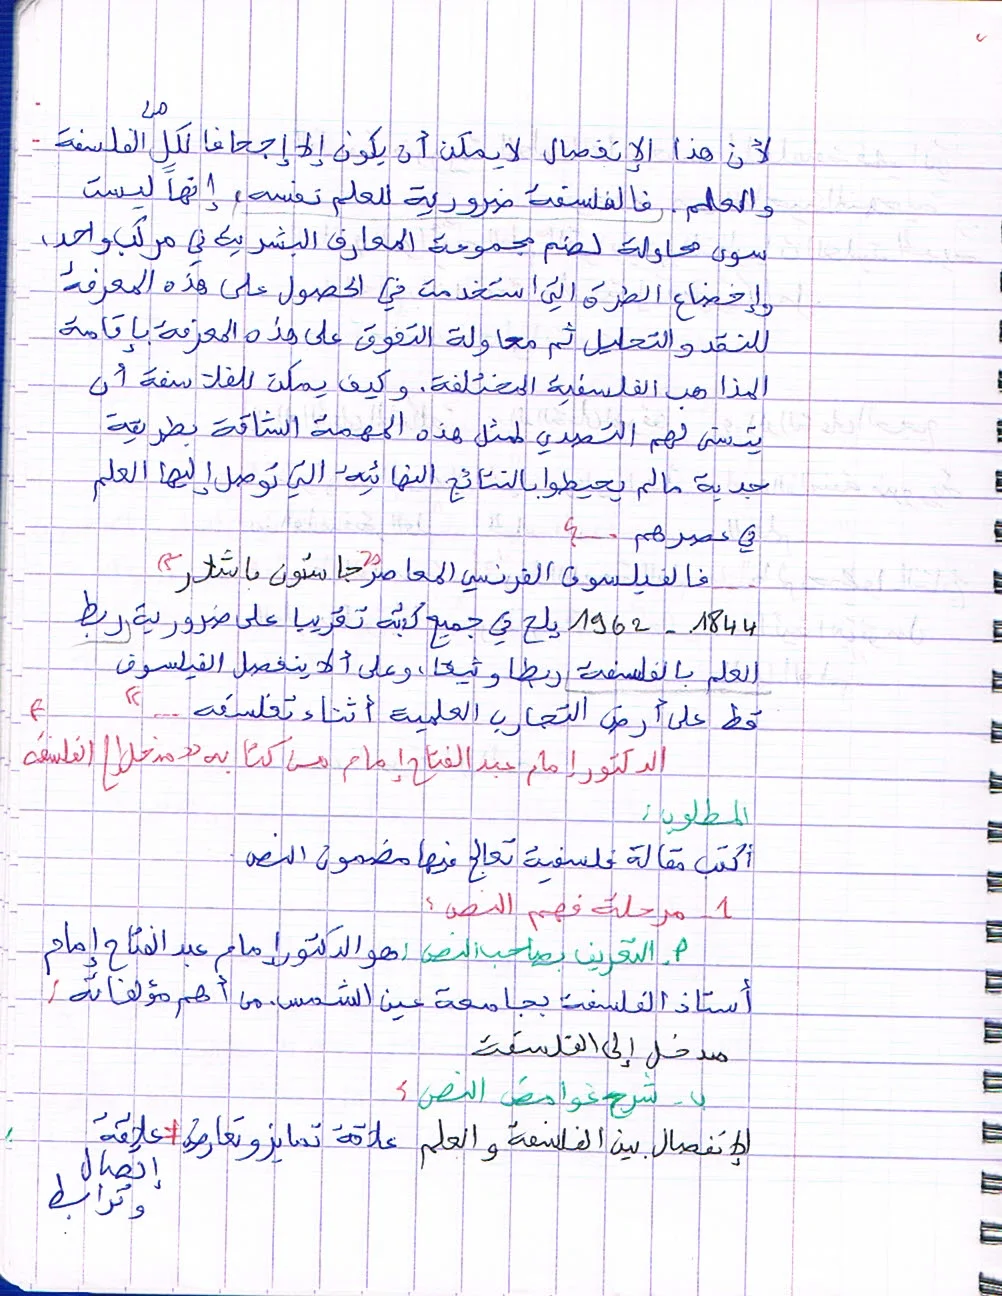 من
لأن هذا الإنفصال لا يمكن أن يكون إلا إجحافا لكل الفلسفة
والعلم. فالفلسفة ضرورية للعلم نفسه، إنها ليست
سوى محاولة لضم مجموعة المعارف البشرية في مركب واحد،
وإخضاع الطرق التي استخدمت في الحصول على هذه المعرفة
للنقد والتحليل ثم محاولة التفوق على هذه المعرفة بإقامة
المذاهب الفلسفية المختلفة. وكيف يمكن للفلاسفة أن
يتسنى لهم التصدي لمثل هذه المهمة الشاقة بطريقة
جدية مالم يحيطوا بالنتائج النهائية التي توصل إليها العلم
في عصرهم ....
فالفيلسوف الفرنسي المعاصر «جاستون باشلار»
1844 - 1962 يلح في جميع كتبه تقريبا على ضرورية ربط
العلم بالفلسفة ربطا وثيقا، وعلى ألا ينفصل الفيلسوف
قط على أرض التجارب العلمية أثناء تفلسفه ... »
الدكتور إمام عبد الفتاح إمام من كتابه «مدخل إلى الفلسفة
المطلوب:
أكتب مقالة فلسفية تعالج فيها مضمون النص
1- مرحلة فهم النص:
أ- التعريف بصاحب النص: هو الدكتور إمام عبد الفتاح إمام
أستاذ الفلسفة بجامعة عين الشمس. من أهم مؤلفاته:
مدخل إلى الفلسفة
ب- شرح غوامض النص:
الإنفصال بين الفلسفة والعلم علاقة تمايز وتعارض ≠ علاقة
إتصال
وترابط